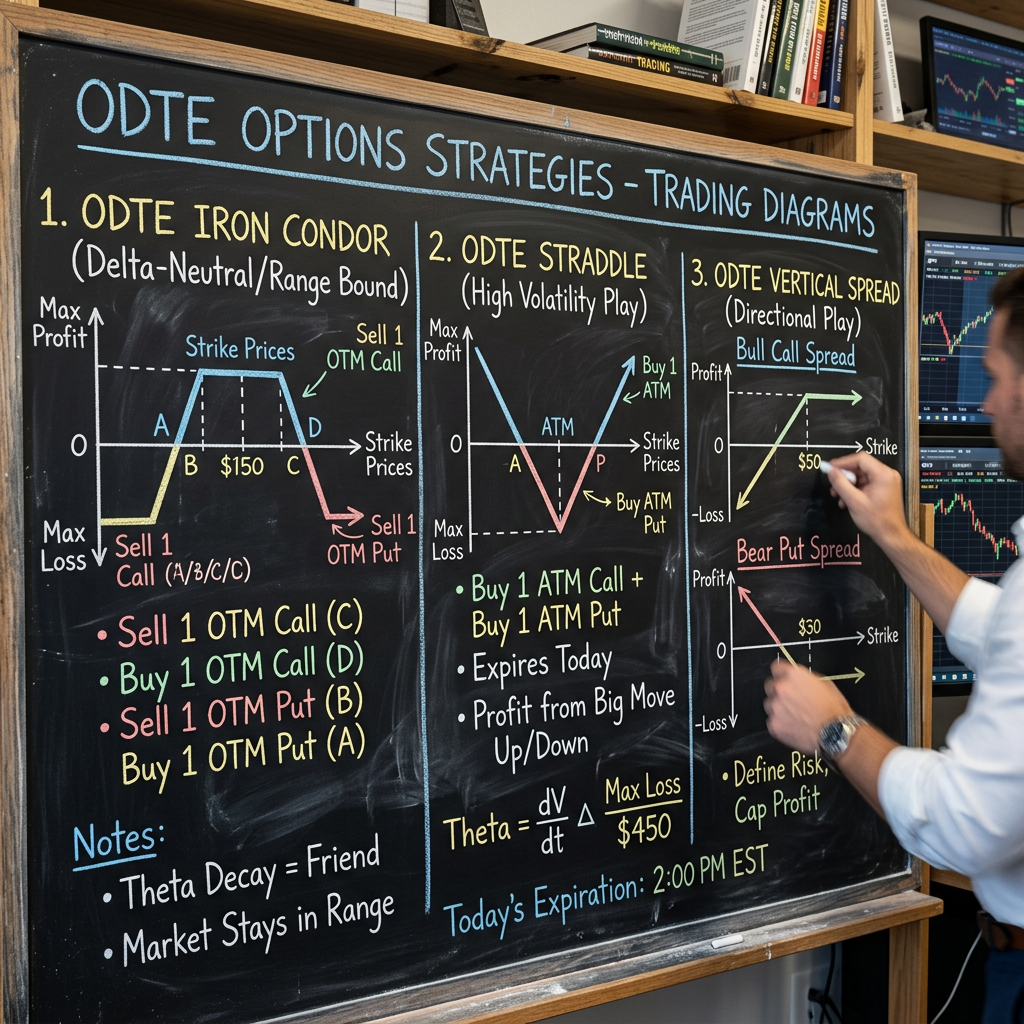 ODTE OPTIONS STRATEGIES – TRADING DIAGRAMS
1. ODTE IRON CONDOR
(Delta-Neutral/Range Bound)
Max
Profit
Strike Prices
Sell 1
OTM Call
A
D
O
B
$150
C
Strike
Prices
Max
Loss
Sell 1
Call (A/B/C/C)
Sell 1
OTM Put
• Sell 1 OTM Call (C)
• Buy 1 OTM Call (D)
• Sell 1 OTM Put (B)
Buy 1 OTM Put (A)
Notes:
• Theta Decay = Friend
• Market Stays in Range
2. ODTE STRADDLE
(High Volatility Play)
Max
Profit
Buy 1
ATM
ATM
O
A
P
Strike
Prices
Buy ATM
Put
Max
Loss
• Buy 1 ATM Call +
Buy 1 ATM Put
• Expires Today
• Profit from Big Move
Up/Down
Theta = dV/dt Δ Max Loss/$450
Today's Expiration: 2:00 PM EST
3. ODTE VERTICAL SPREAD
(Directional Play)
Bull Call Spread
Profit
O
$50
Strike
-Loss
Bear Put Spread
Profit
$30
O
Strike
-Loss
• Define Risk,
Cap Profit
TRADING